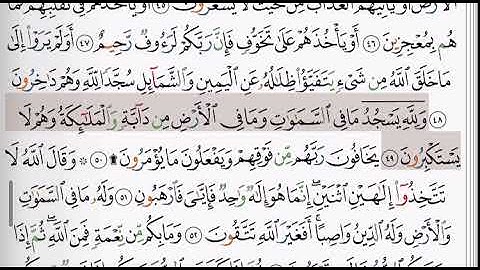 ٱلْأَرْضَ أَوْ يَأْتِيَهُمُ ٱلْعَذَابُ مِنْ حَيْثُ لَا يَشْعُرُونَ ٤٥ أَوْ يَأْخُذَهُمْ فِى تَقَلُّبِهِمْ فَمَا
هُم بِمُعْجِزِينَ ٤٦ أَوْ يَأْخُذَهُمْ عَلَىٰ تَخَوُّفٍ فَإِنَّ رَبَّكُمْ لَرَءُوفٌ رَّحِيمٌ ٤٧ أَوَلَمْ يَرَوْا۟ إِلَىٰ
مَا خَلَقَ ٱللَّهُ مِن شَىْءٍ يَتَفَيَّؤُا۟ ظِلَـٰلُهُۥ عَنِ ٱلْيَمِينِ وَٱلشَّمَآئِلِ سُجَّدًا لِّلَّهِ وَهُمْ دَٰخِرُونَ
٤٨ وَلِلَّهِ يَسْجُدُ مَا فِى ٱلسَّمَـٰوَٰتِ وَمَا فِى ٱلْأَرْضِ مِن دَآبَّةٍ وَٱلْمَلَـٰٓئِكَةُ وَهُمْ لَا
يَسْتَكْبِرُونَ ٤٩ يَخَافُونَ رَبَّهُم مِّن فَوْقِهِمْ وَيَفْعَلُونَ مَا يُؤْمَرُونَ ۩ ٥٠ ۞ وَقَالَ ٱللَّهُ لَا
تَتَّخِذُوٓا۟ إِلَـٰهَيْنِ ٱثْنَيْنِ ۖ إِنَّمَا هُوَ إِلَـٰهٌ وَٰحِدٌ ۖ فَإِيَّـٰىَ فَٱرْهَبُونِ ٥١ وَلَهُۥ مَا فِى ٱلسَّمَـٰوَٰتِ
وَٱلْأَرْضِ وَلَهُ ٱلدِّينُ وَاصِبًا ۚ أَفَغَيْرَ ٱللَّهِ تَتَّقُونَ ٥٢ وَمَا بِكُم مِّن نِّعْمَةٍ فَمِنَ ٱللَّهِ ۖ ثُمَّ إِذَا